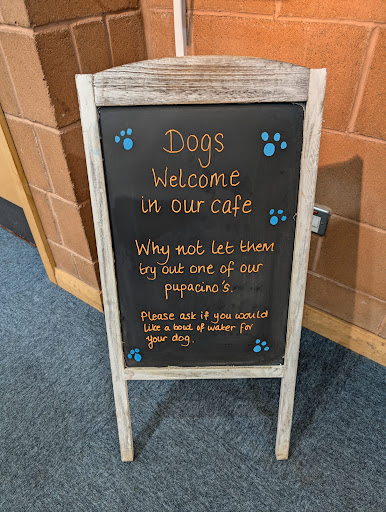 Dogs
Welcome
in our cafe
Why not let them
try out one of our
pupacino's.
Please ask if you would
like a bowl of water for
your dog.